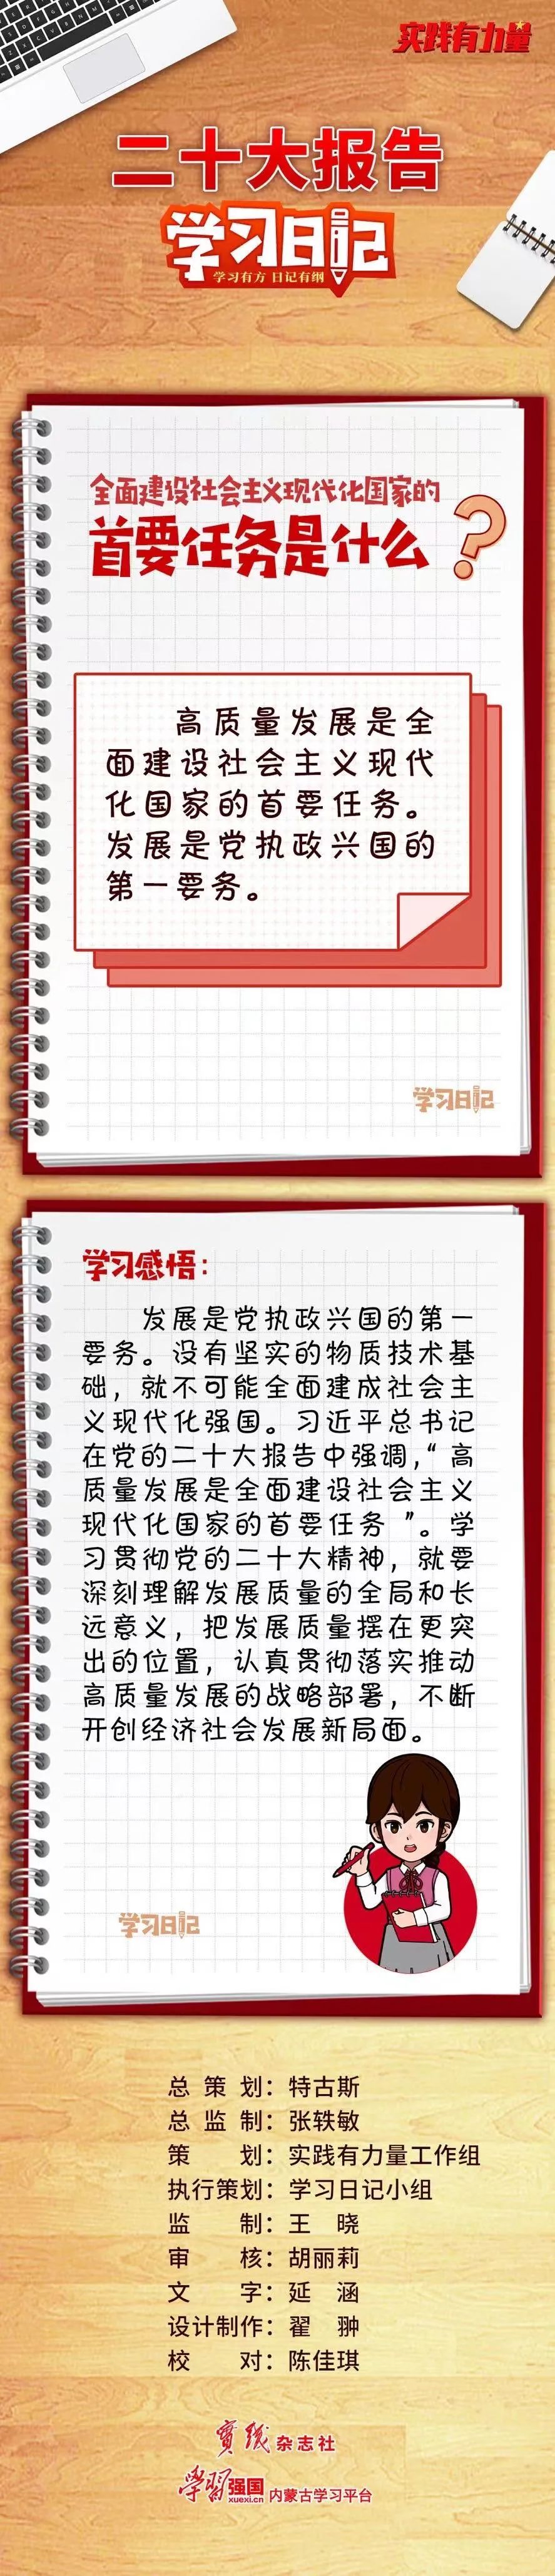 实践有力量
二十大报告
学习日记
学习有方 日记有纲
全面建设社会主义现代化国家的
首要任务是什么？
高质量发展是全
面建设社会主义现代
化国家的首要任务。
发展是党执政兴国的
第一要务。
学习日记
学习感悟：
发展是党执政兴国的第一
要务。没有坚实的物质技术基
础，就不可能全面建成社会主
义现代化强国。习近平总书记
在党的二十大报告中强调，“高
质量发展是全面建设社会主义
现代化国家的首要任务”。学
习贯彻党的二十大精神，就要
深刻理解发展质量的全局和长
远意义，把发展质量摆在更突
出的位置，认真贯彻落实推动
高质量发展的战略部署，不断
开创经济社会发展新局面。
学习日记
总策划：特古斯
总监制：张轶敏
策划：实践有力量工作组
执行策划：学习日记小组
监制：王晓
审核：胡丽莉
文字：延涵
设计制作：翟翀
校对：陈佳琪
實践杂志社
学习强国 xuexi.cn 内蒙古学习平台